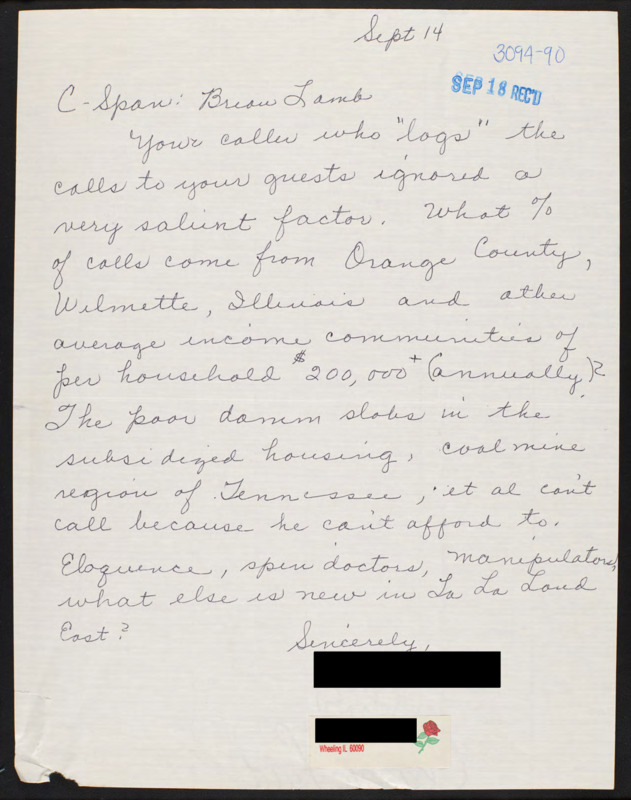 Sept 14
3094-90
SEP 18 REC'D
C-Span: Brian Lamb
Your caller who "logs" the
calls to your guests ignored a
very salient factor. What %
of calls come from Orange County,
Wilmette, Illinois and other
average income communities of
per household $200,000+ (annually)?
The poor damm slobs in the
subsidized housing, coal mine
region of Tennessee, et al can't
call because he can't afford to.
Eloquence, spin doctors, manipulators,
what else is new in La La Land
East?
Sincerely,
Wheeling IL 60090